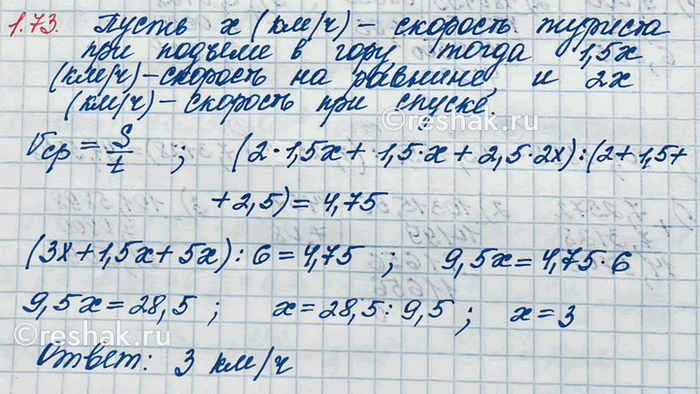 1.73. Пусть x (км/ч) – скорость туриста
при подъеме в гору тогда 1,5x
(км/ч) – скорость на равнине, и 2x
(км/ч) – скорость при спуске.
© reshak.ru
Vср = S/t ; (2·1,5x + 1,5·x + 2,5·2x):(2+1,5+
+2,5) = 4,75
(3x+1,5x+5x):6=4,75 ; 9,5x=4,75·6
9,5x=28,5 ; x=28,5:9,5 ; x=3
© reshak.ru
Ответ: 3 км/ч